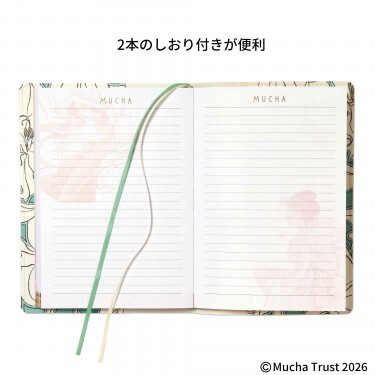 2本のしおり付きが便利
MUCHA
MUCHA
©Mucha Trust 2026